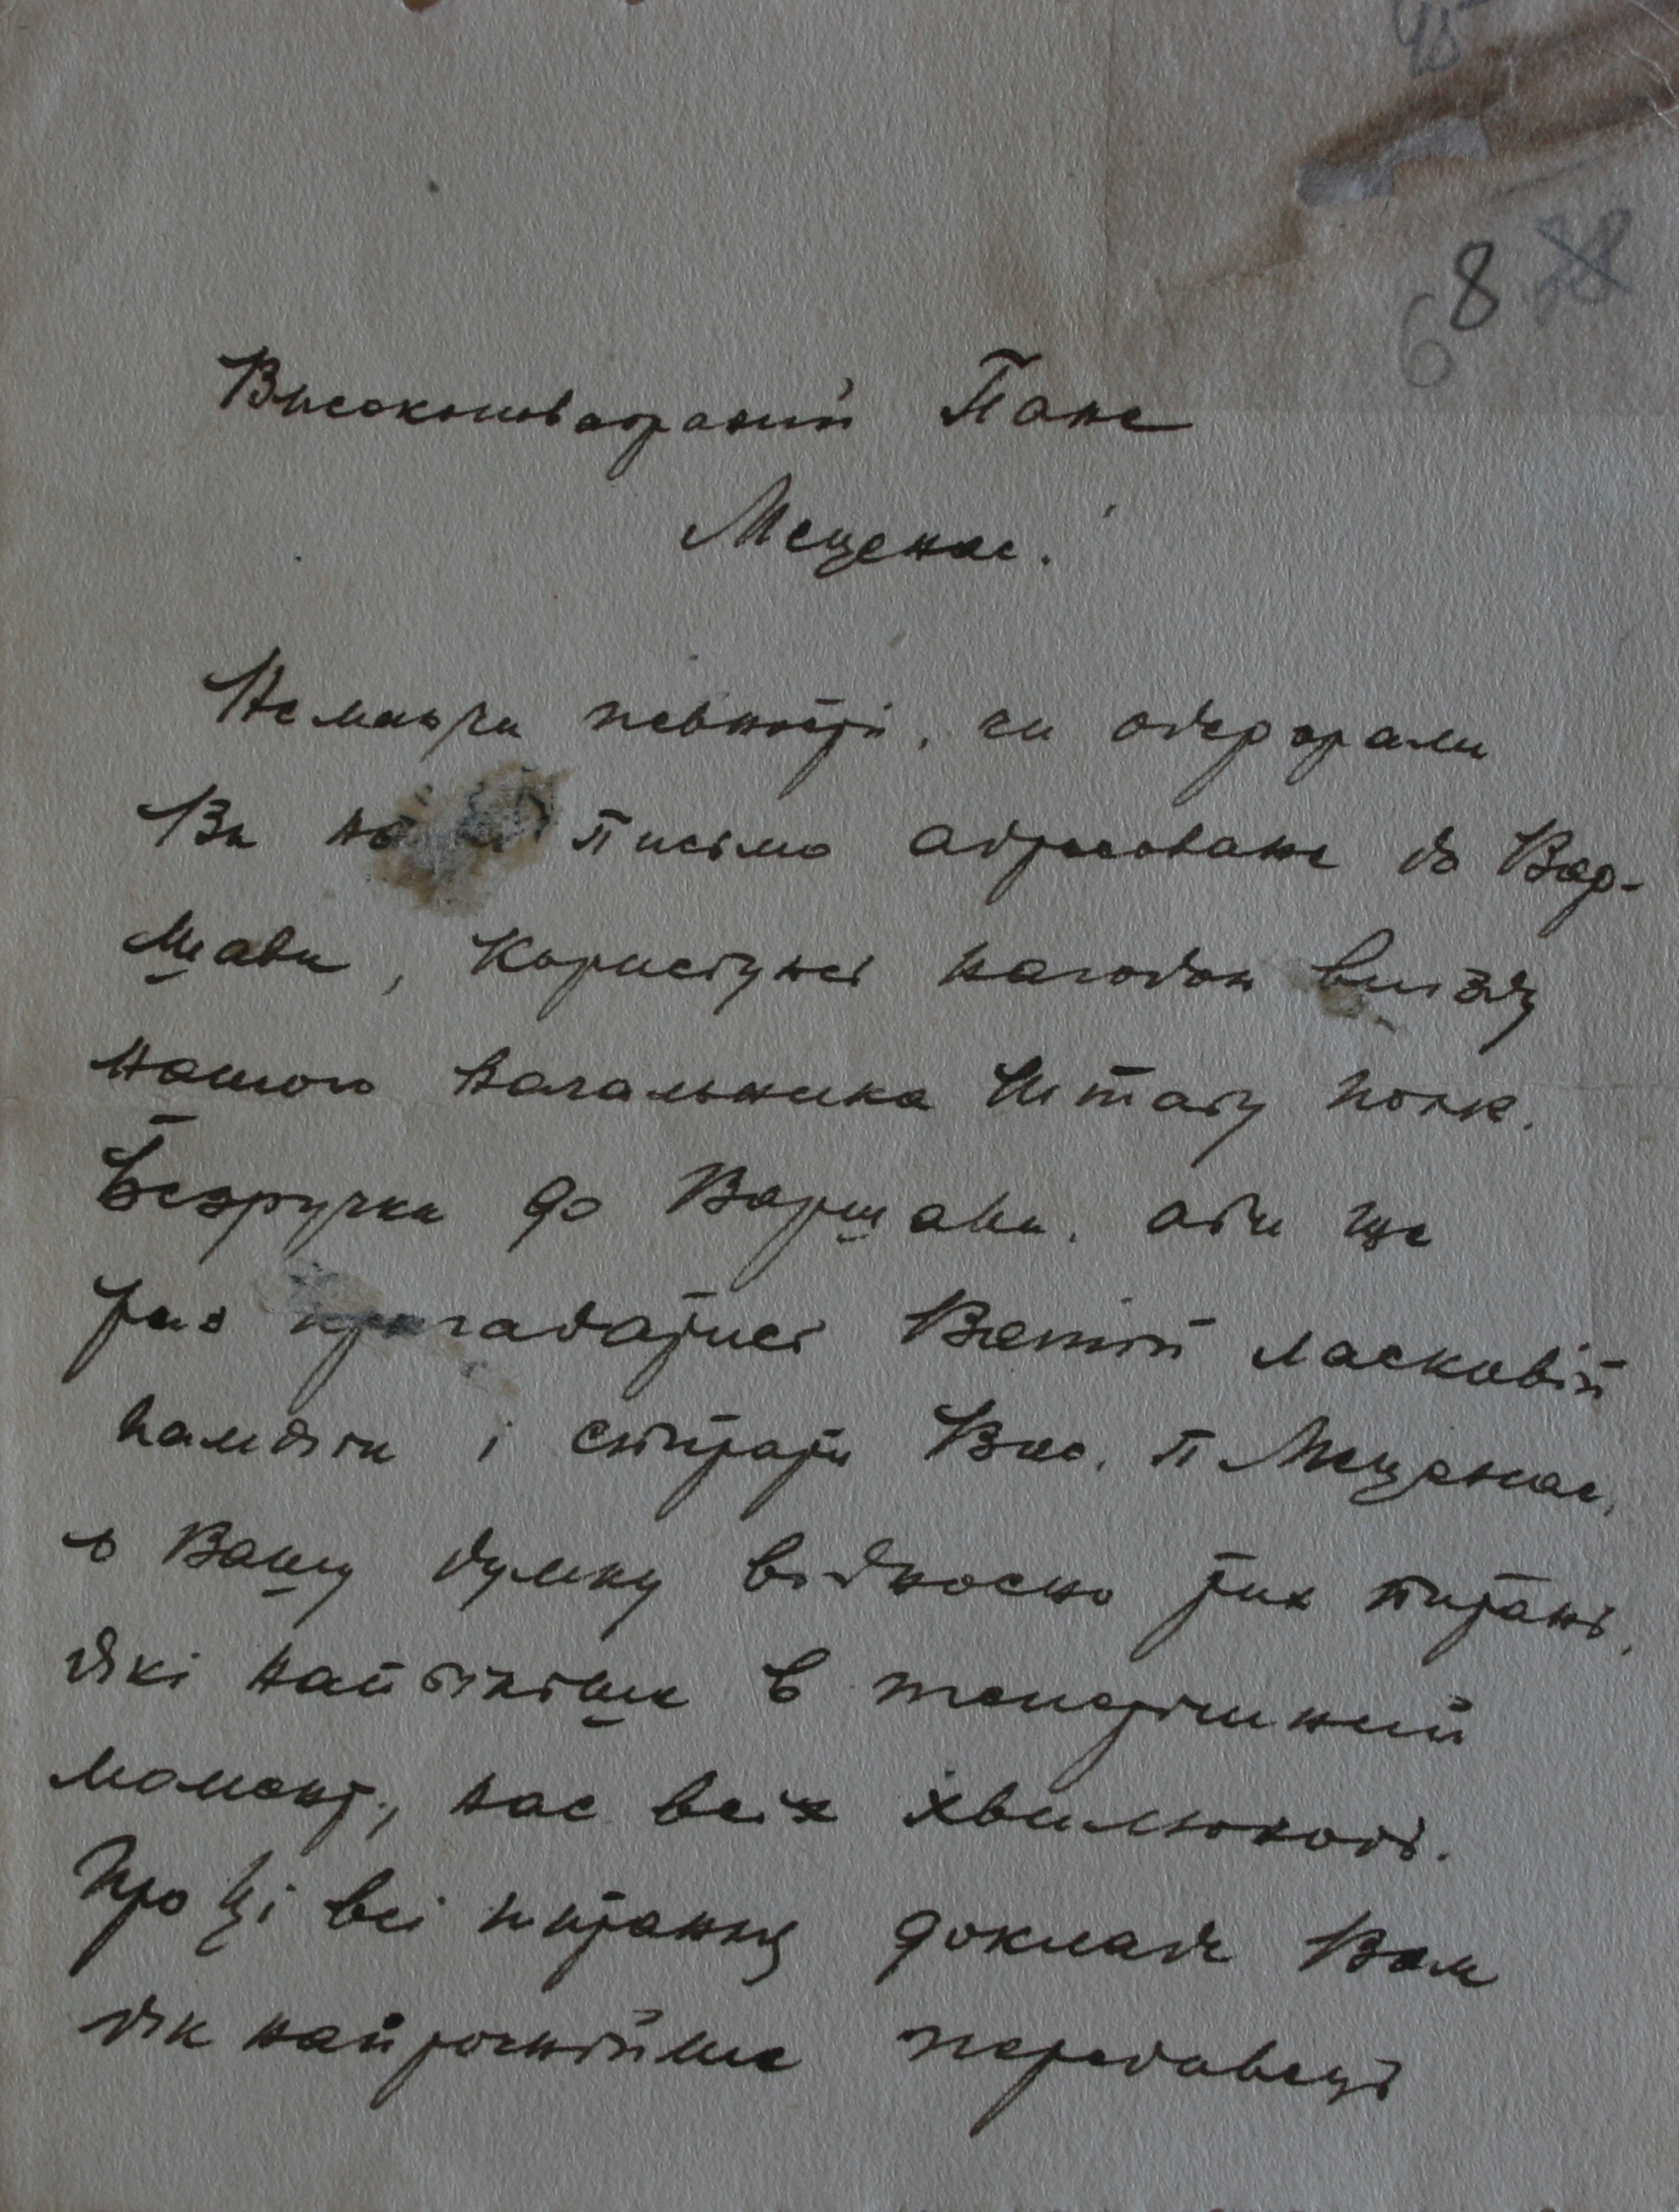 45
8 38
6
Високоповажаний Пане
Меценас!
Не маючи певности, чи одержали
Ви письмо адресоване до Вар-
шави, користуюсь нагодою виїзду
нашого начальника Штабу полк.
Безручка до Варшави, аби ще
раз пригадатись Вашій ласкавій
памяти і спитати Вас, п Меценас,
о Вашу думку відносно тих питань,
які найбільше в теперішний
момент, нас всіх хвилюють.
Про ці всі питання докладе Вам
як найточнійше передавець